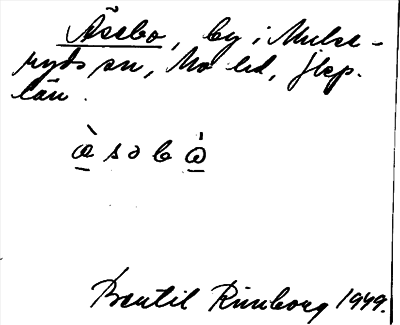 Åsebo, by i Mulse-
ryds sn, Mo hd, jkp.
län.
å̀ s ɔ b ω̇
Bertil Runborg 1949.